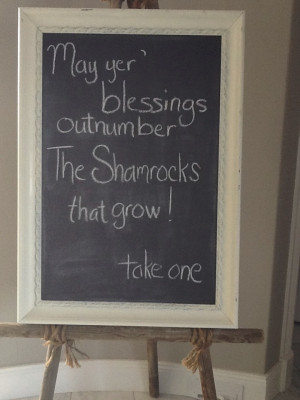 May yer'
blessings
outnumber
The Shamrocks
that grow!
take one